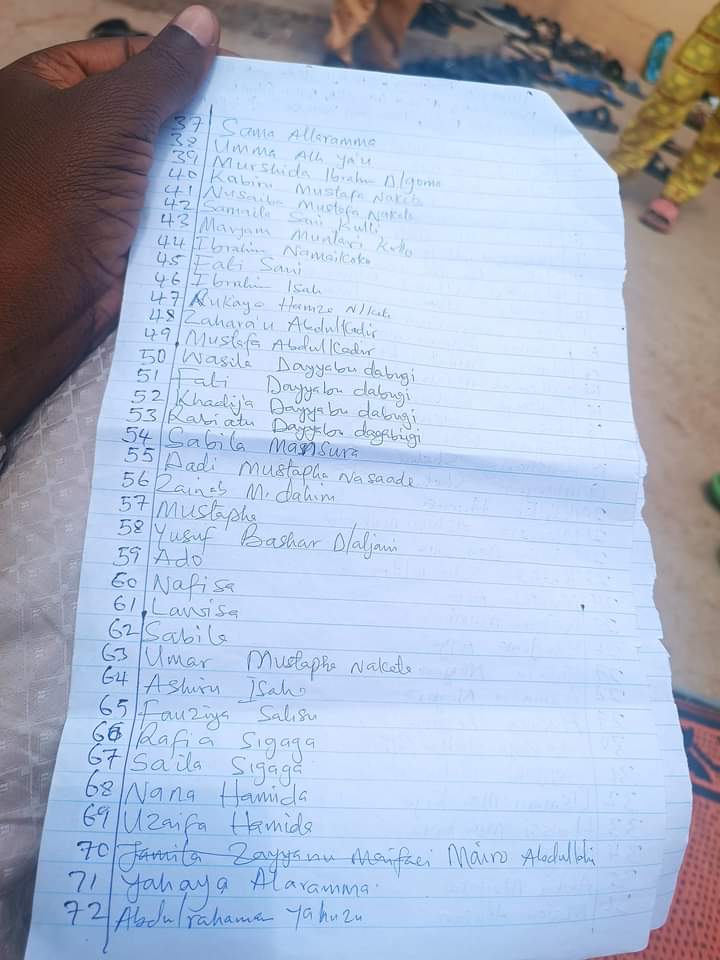 37 Sama Allaramma
38 Umma Alh Ya'u
39 Murshida Ibrahim D/goma
40 Kabiru Mustafa Nakete
41 Nusaiba Mustafa Nakete
42 Samaila Sani Kulli
43 Maryam Muntari Kullo
44 Ibrahim Namaikoko
45 Fati Sani
46 Ibrahim Isah
47 Rukaya Hamza N/kete
48 Zahara'u Abdulkadir
49 Mustafa Abdulkadir
50 Wasila Dayyabu dabugi
51 Fati Dayyabu dabugi
52 Khadija Dayyabu dabugi
53 Rabiatu Dayyabu dagabugi
54 Sabila Mansura
55 Dadi Mustapha Nasaade
56 Zainab M. dahim
57 Mustapha
58 Yusuf Bashar D/aljani
59 Ado
60 Nafisa
61 Lawisa
62 Sabila
63 Umar Mustapha Nakete
64 Ashiru Isah
65 Fauziya Salisu
66 Rafia Sigaga
67 Saila Sigaga
68 Nana Hamida
69 Uzaifa Hamida
70 Jamila Zayyanu Maifaci Mairo Abdullahi
71 Yahaya Alaramma
72 Abdulrahaman Yahuzu